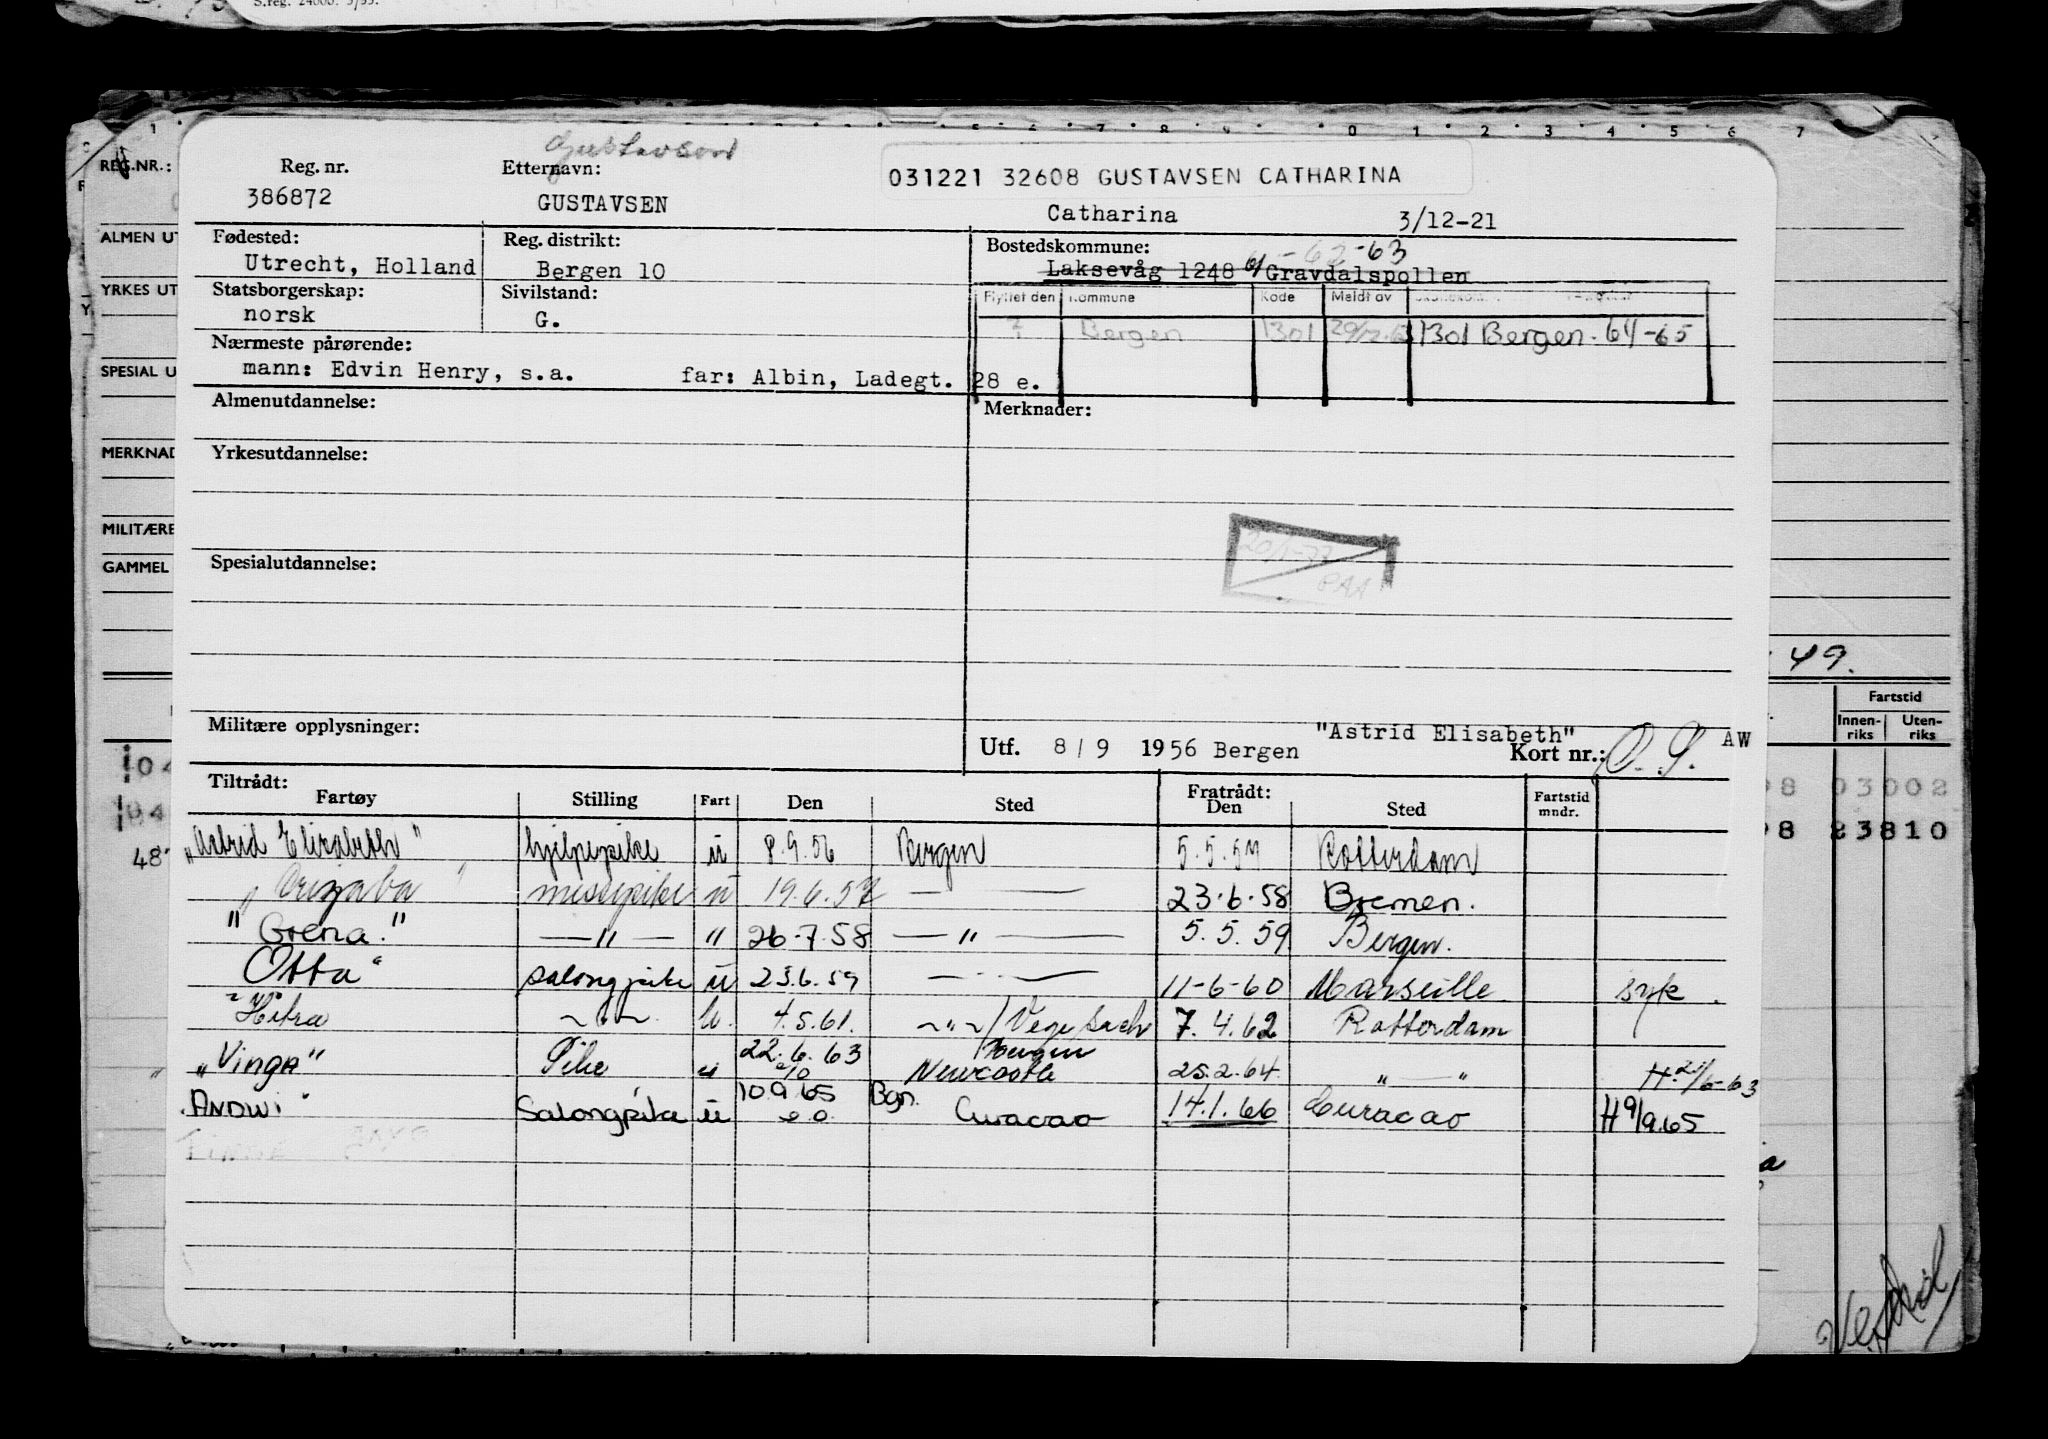 S.reg. 24000. 3/55.
REG.NR.:
ALMEN UT
YRKES UT
SPESIAL U
MERKNAD
MILITÆRE
GAMMEL
Gustavson
Reg. nr. Etternavn:
031221 32608 GUSTAVSEN CATHARINA
386872 GUSTAVSEN Catharina 3/12-21
Fødested: Reg. distrikt: Bostedskommune: -62-63
Utrecht, Holland Bergen 10 Laksevåg 1248 Gravdalspollen
Statsborgerskap: Sivilstand: Flyttet den Kommune Kode Meldt av
norsk G. Bergen 1301 1301 Bergen. 64-65
Nærmeste pårørende:
mann: Edvin Henry, s.a. far: Albin, Ladegt. 28 e.
Almenutdannelse: Merknader:
Yrkesutdannelse:
Spesialutdannelse:
Militære opplysninger: Utf. 8/9 1956 Bergen "Astrid Elisabeth" Kort nr.: O.S. AW
Tiltrådt: Fratrådt:
Fartøy Stilling Fart Den Sted Den Sted Fartstid mndr.
"Astrid Elisabeth" hjelpepike u 8.9.56 Bergen 5.5.57 Rotterdam
"Orizaba" messepike u 19.6.57 — 23.6.58 Bremen.
"Grena." —"— " 26.7.58 —"— 5.5.59 Bergen.
Otta" salongpike u 23.6.59 — 11-6-60 Marseille syk
"Hitra —"— u. 4.5.61. —"—/Vegesack 7.4.62 Rotterdam
"Vinga" Pike u 22.6.63 Bergen Newcastle 25.2.64 "—"
ANDWI" Salongpike u 10.9.65 Bgn. Curacao 14.1.66 Curacao H 9/9.65
49.
Fartstid
Innenriks Utenriks
98 03002
98 23810